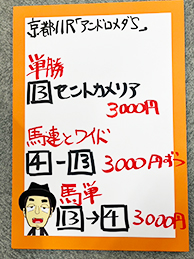 京都11R「アンドロメダS」
単勝
13 モントカメリア
3000円
馬連とワイド
4-13 3000円ずつ
馬単
13→4 3000円